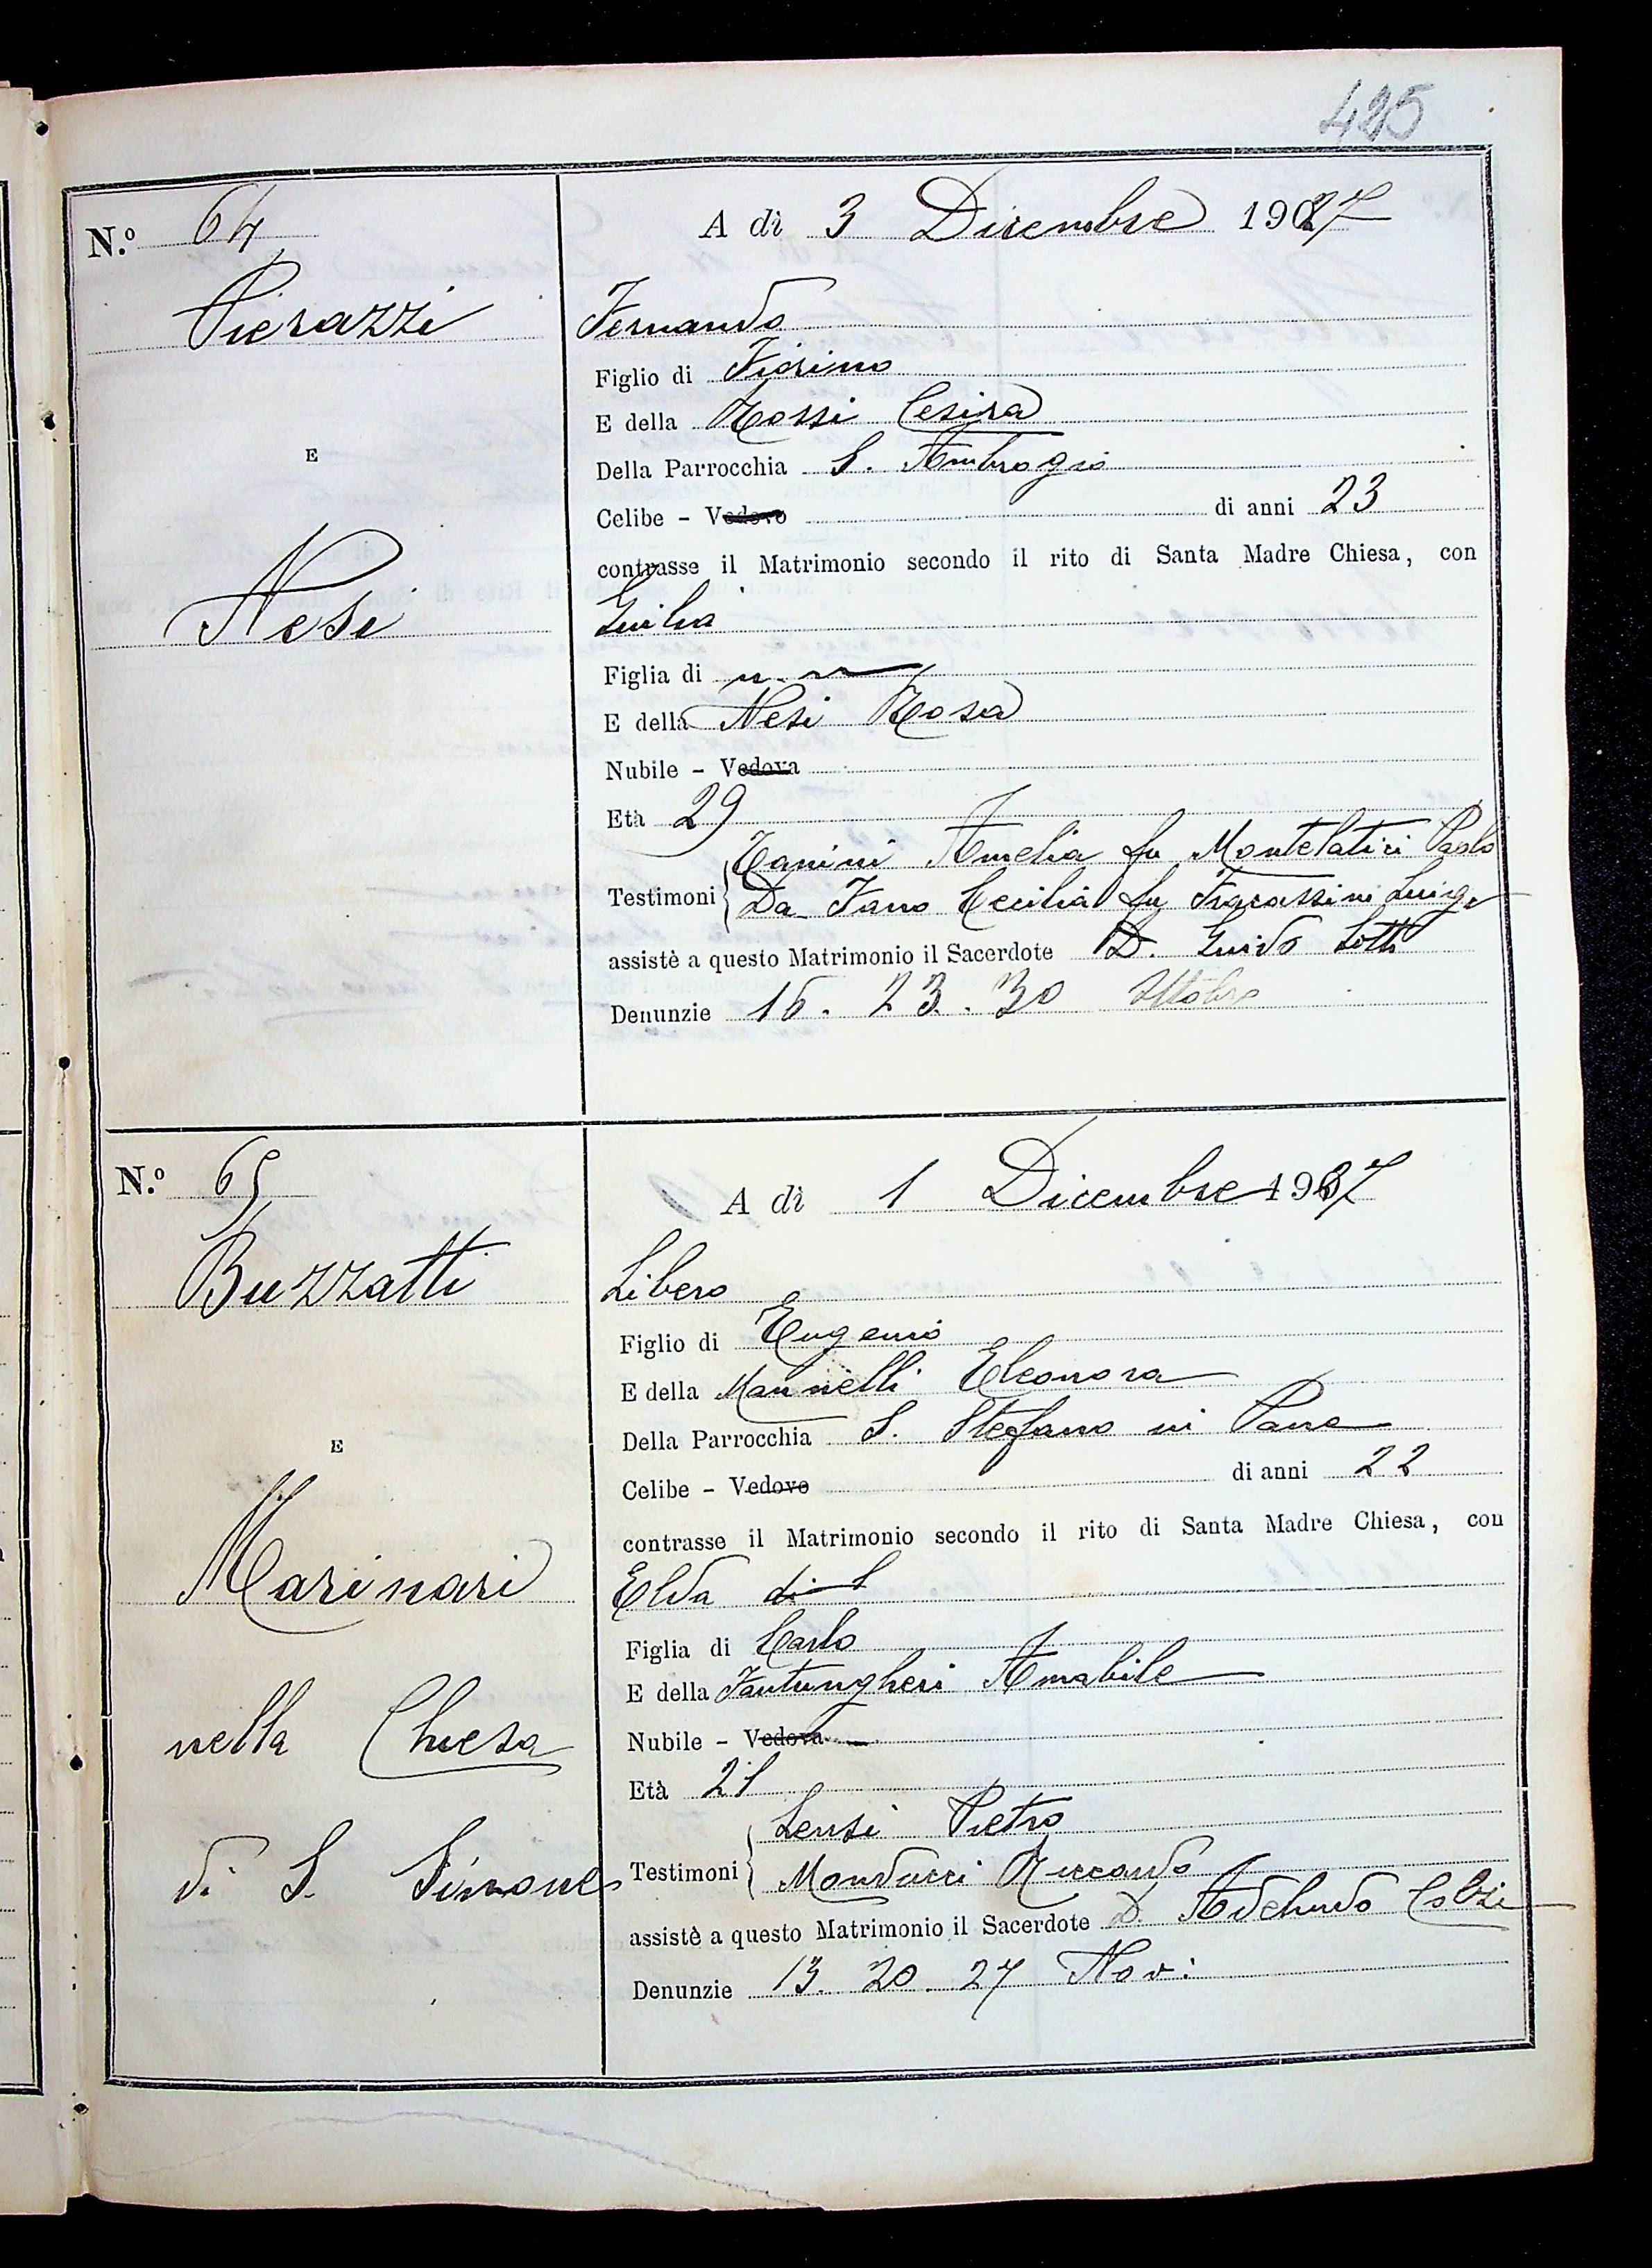 425
N.º 64
A dì 3 Dicembre 1927
Pierazzi
Fernando
Figlio di Fiorino
E della Rossi Cesira
E
Della Parrocchia S. Ambrogio
Celibe - Vedovo di anni 23
contrasse il Matrimonio secondo il rito di Santa Madre Chiesa, con
Nesi
Giulia
Figlia di n. n.
E della Nesi Rosa
Nubile - Vedova
Età 29
Tanini Amelia fu Montelatici Paolo
Testimoni Da Fano Cecilia fu Fracassini Luigi
assistè a questo Matrimonio il Sacerdote D. Guido Lotti
Denunzie 16. 23. 30 Ottobre
N.º 65
A dì 1 Dicembre 1927
Buzzatti
Libero
Figlio di Eugenio
E della Mannelli Eleonora
Della Parrocchia S. Stefano in Pane
E
Celibe - Vedovo di anni 22
contrasse il Matrimonio secondo il rito di Santa Madre Chiesa, con
Marinari
Elda di
Figlia di Carlo
E della Amabile
nella Chiesa
Nubile - Vedova
Età 21
Lensi Pietro
di S. Simone
Testimoni Manducci Riccardo
assistè a questo Matrimonio il Sacerdote D.
Denunzie 13. 20. 27 Nov: